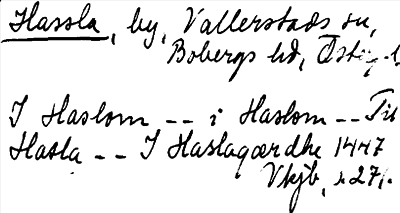 Hassla, by, Vallerstads sn,
Bobergs hd, Östg. l.
I Haslom -- i Haslom --
Hasla -- I Haslagærdhe 1447
Vkjb, s. 271.